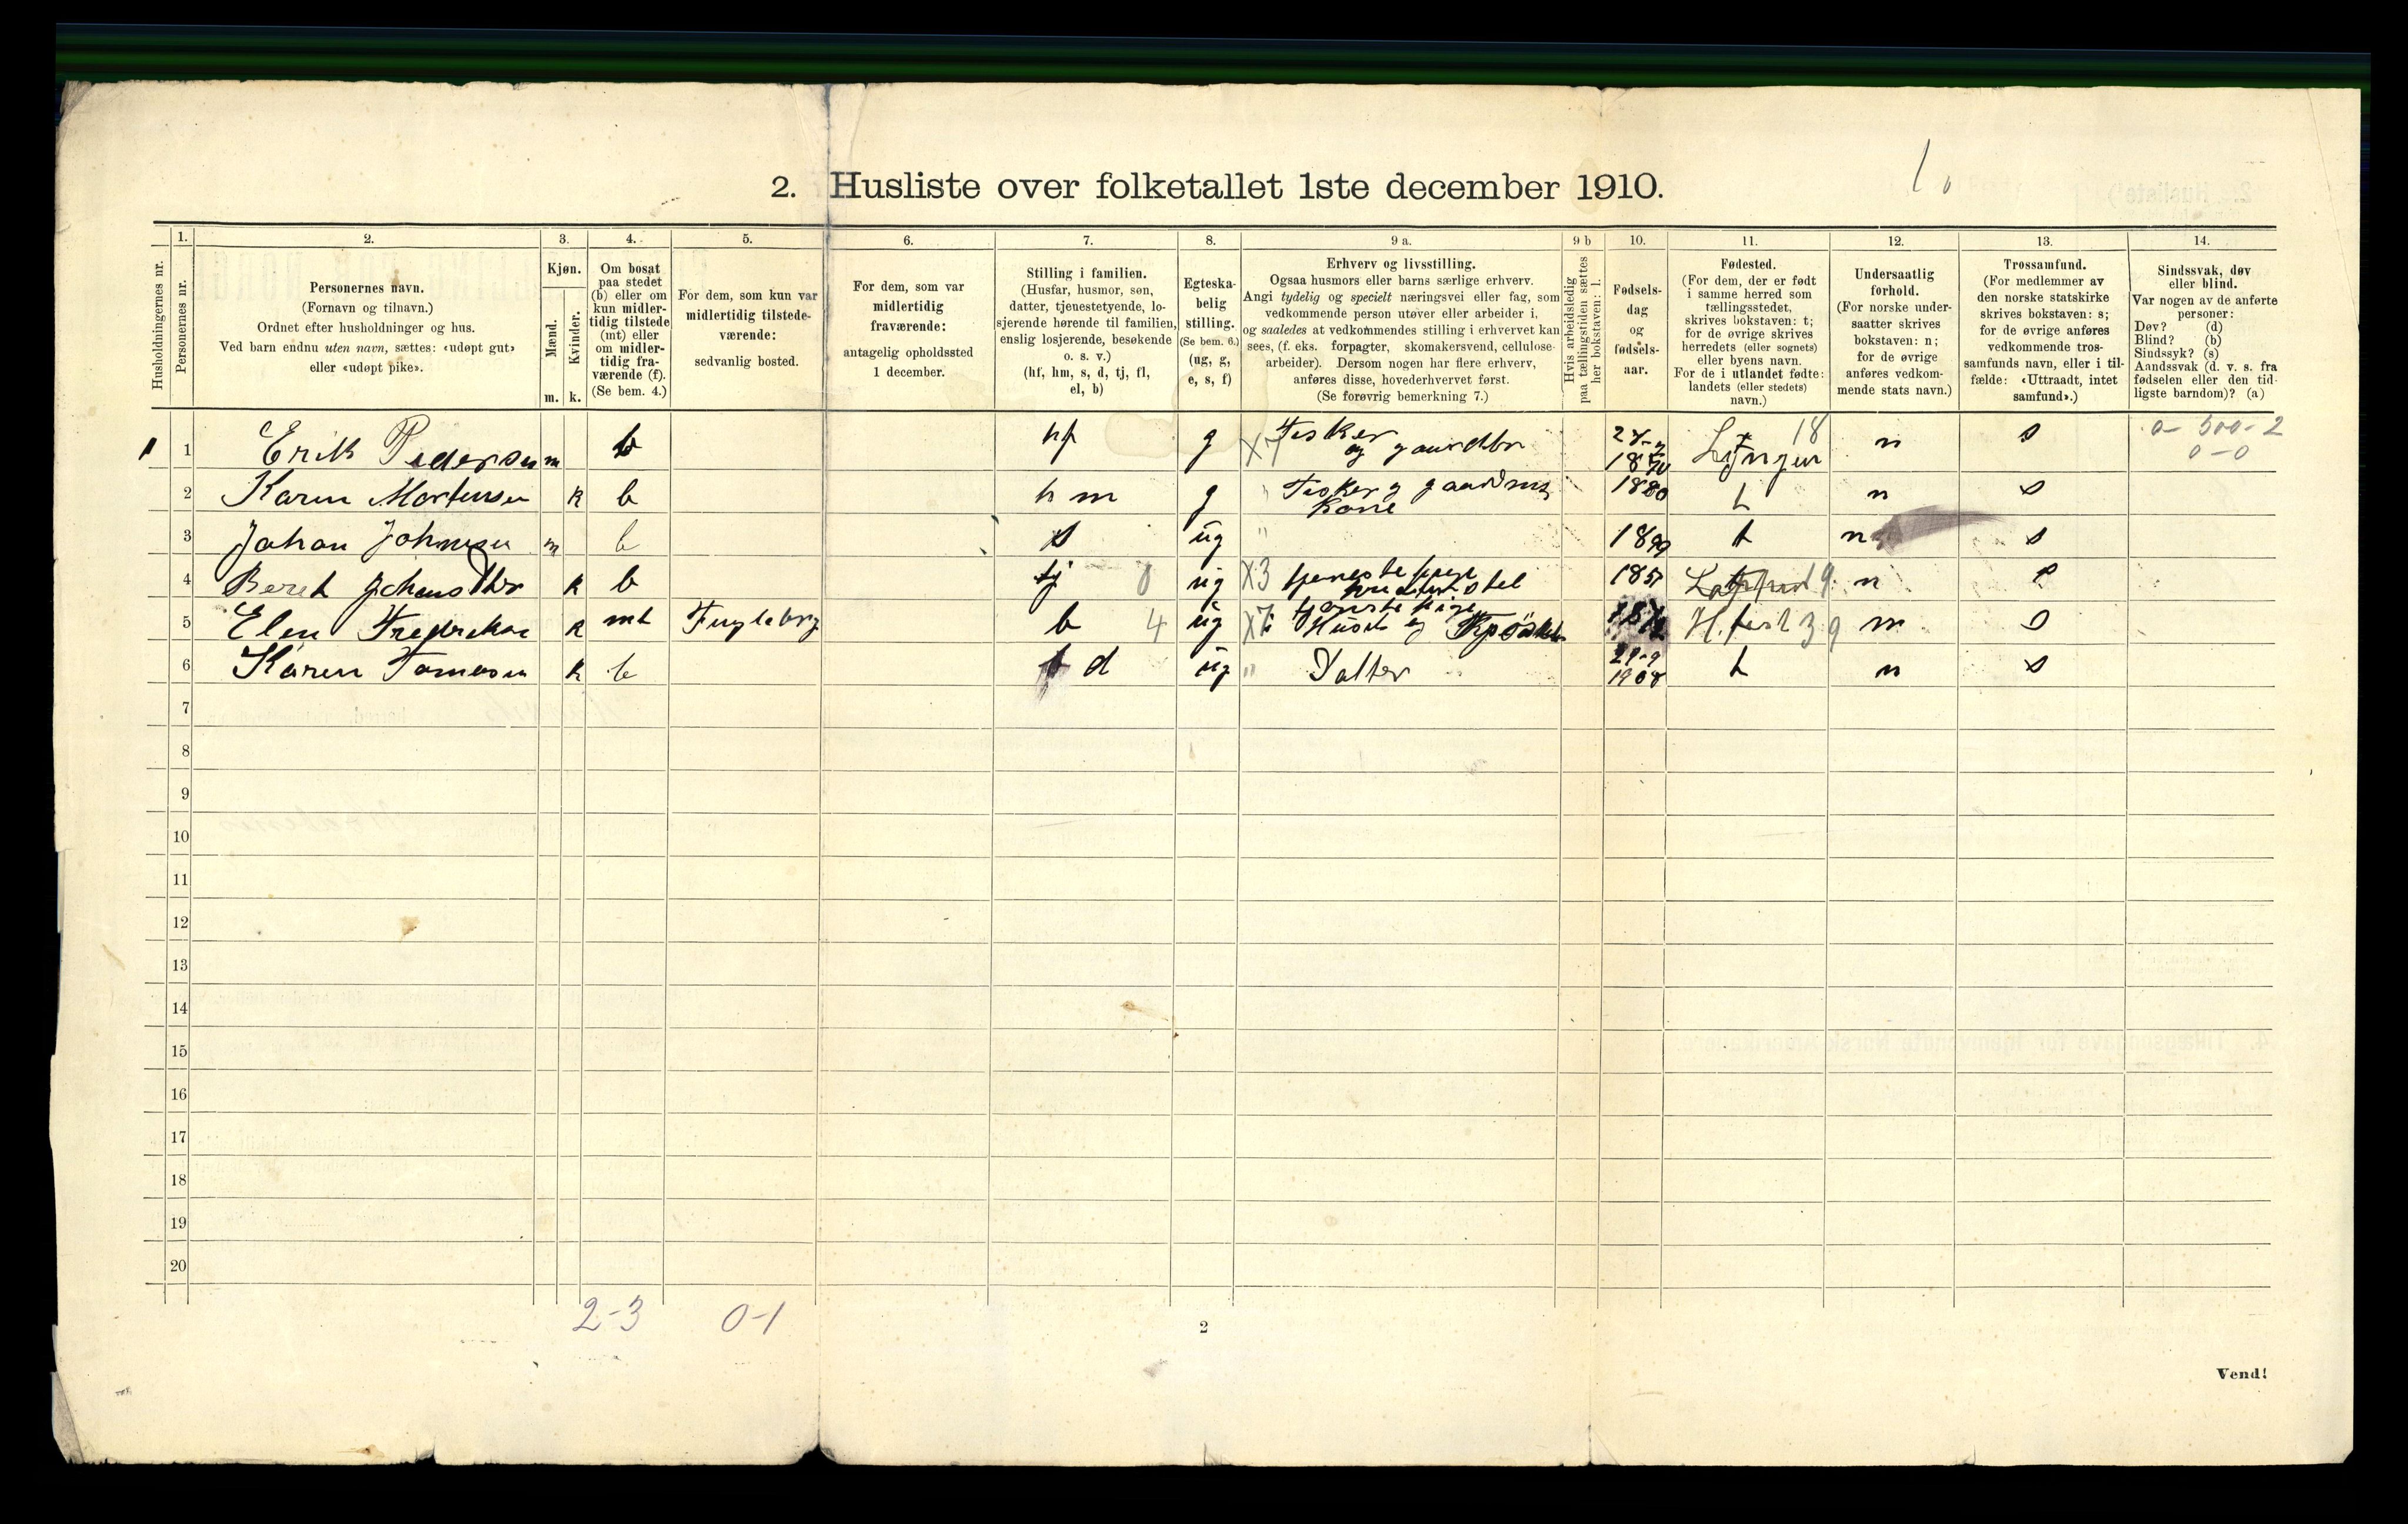 2. Husliste over folketallet 1ste december 1910.
Husholdningernes nr.
1.
Personernes nr.
2.
Personernes navn.
(Fornavn og tilnavn.)
Ordnet efter husholdninger og hus.
Ved barn endnu uten navn, sættes: «udøpt gut»
eller «udøpt pike».
3.
Kjøn.
Mænd.
Kvinder.
m. k.
4.
Om bosat
paa stedet
(b) eller om
kun midler-
tidig tilstede
(mt) eller
om midler-
tidig fra-
værende (f).
(Se bem. 4.)
5.
For dem, som kun var
midlertidig tilstede-
værende:
sedvanlig bosted.
6.
For dem, som var
midlertidig
fraværende:
antagelig opholdssted
1 december.
7.
Stilling i familien.
(Husfar, husmor, søn,
datter, tjenestetyende, lo-
sjerende hørende til familien,
enslig losjerende, besøkende
o. s. v.)
(hf, hm, s, d, tj, fl,
el, b)
8.
Egteska-
belig
stilling.
(Se bem. 6.)
(ug, g,
e, s, f)
9 a.
Erhverv og livsstilling.
Ogsaa husmors eller barns særlige erhverv.
Angi tydelig og specielt næringsvei eller fag, som
vedkommende person utøver eller arbeider i,
og saaledes at vedkommendes stilling i erhvervet kan
sees, (f. eks. forpagter, skomakersvend, cellulose-
arbeider). Dersom nogen har flere erhverv,
anføres disse, hovederhvervet først.
(Se forøvrig bemerkning 7.)
9 b
Hvis arbeidsledig
paa tællingstiden sættes
her bokstaven: l.
10.
Fødsels-
dag
og
fødsels-
aar.
11.
Fødested.
(For dem, der er født
i samme herred som
tællingsstedet,
skrives bokstaven: t;
for de øvrige skrives
herredets (eller sognets)
eller byens navn.
For de i utlandet fødte:
landets (eller stedets)
navn.)
12.
Undersaatlig
forhold.
(For norske under-
saatter skrives
bokstaven: n;
for de øvrige
anføres vedkom-
mende stats navn.)
13.
Trossamfund.
(For medlemmer av
den norske statskirke
skrives bokstaven: s;
for de øvrige anføres
vedkommende tros-
samfunds navn, eller i til-
fælde: «Uttraadt, intet
samfund».)
14.
Sindssvak, døv
eller blind.
Var nogen av de anførte
personer:
Døv? (d)
Blind? (b)
Sindssyk? (s)
Aandssvak (d. v. s. fra
fødselen eller den tid-
ligste barndom)? (a)
1 1 Erik Pedersen m b hf g Fisker og gaardbr Lyngen 18 n s 0-300-2
0-0
2 Karen Mortensen k b hm g Fisker og Kone 1880 t n s
3 Johan Johnsen m b s ug 1899 t n s
4 Beret k b tj ug X3 185 9 n s
5 Elen k mt Fugleberg b 4 ug tjenestepige H. fest 39 n s
6 Karen k b d ug Datter 29-9
1908 t n s
7
8
9
10
11
12
13
14
15
16
17
18
19
20
2-3 0-1
2
Vend!